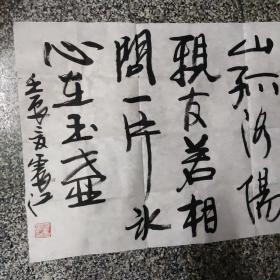 山孤洛陽
親友若相
問一片冰
心在玉壺
壬辰